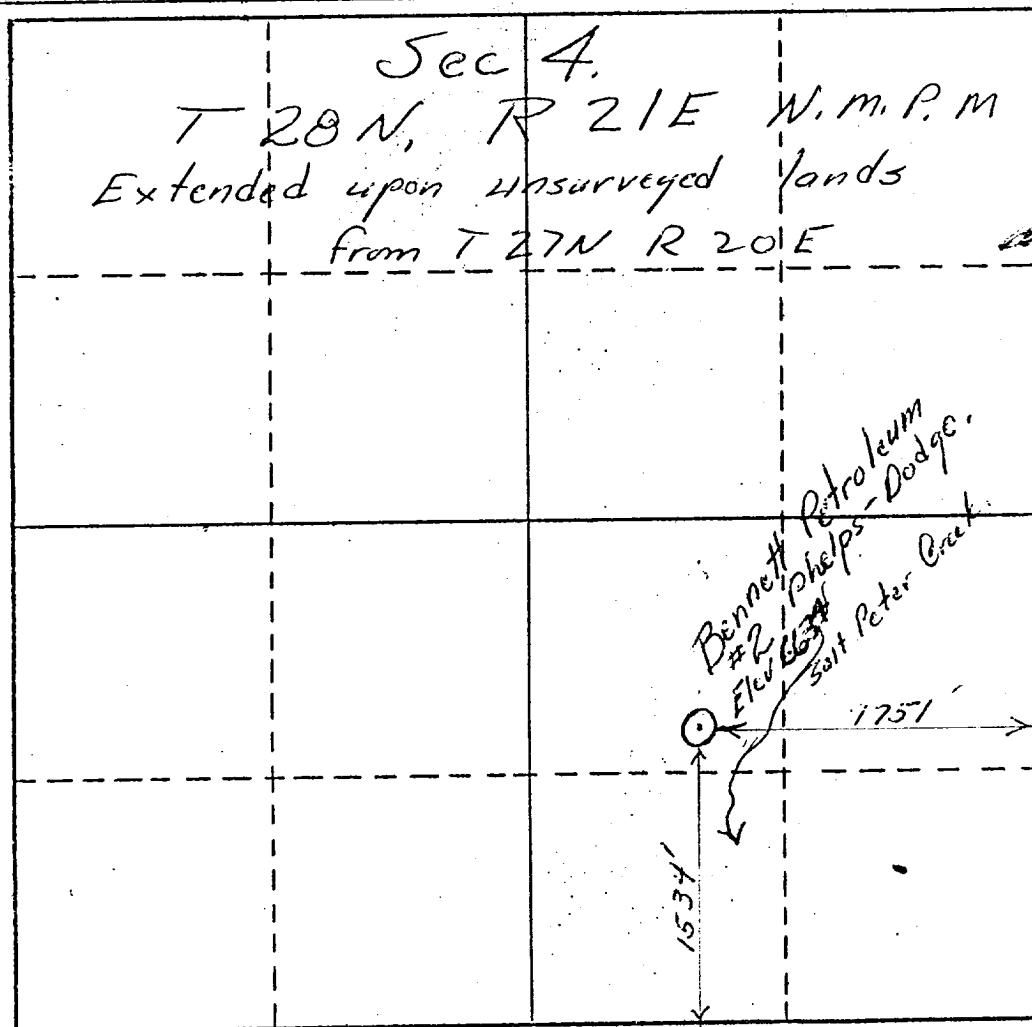 Sec 4.
T 28 N, R 21 E N.M.P.M
Extended upon unsurveyed lands
from T 27 N R 20 E
Bennett Petroleum
#2 Phelps-Dodge.
Elev
Salt Peter Creek.
1751'
1534'